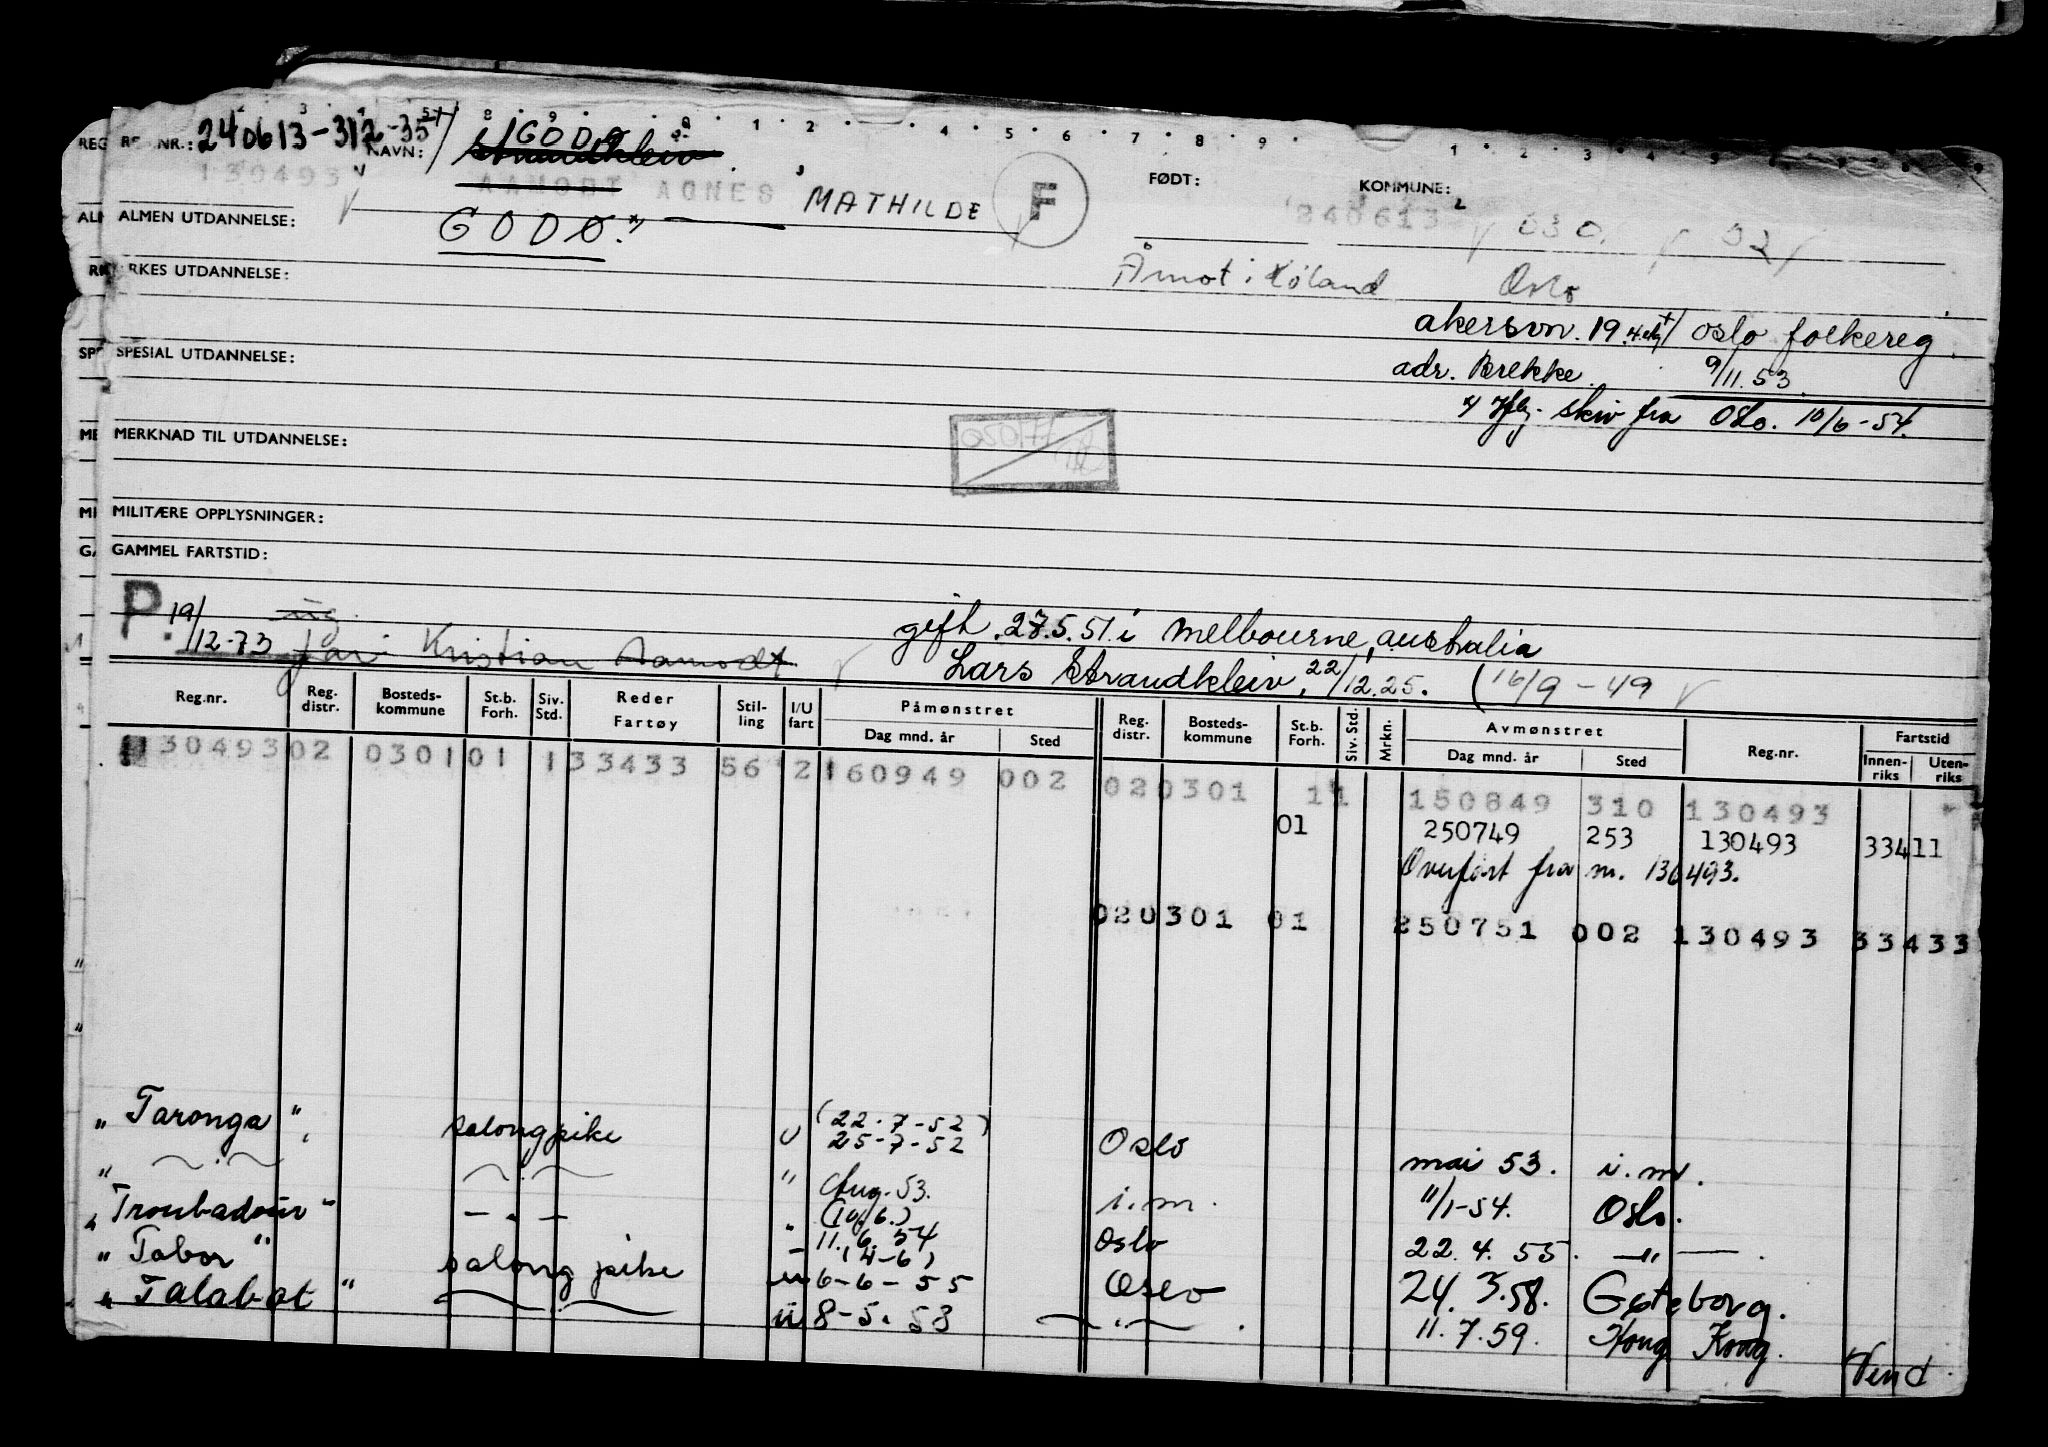 REG.NR.: 240613-312-35 NAVN: GODØ
Strandkleiv
130493 AAMODT AGNES MATHILDE F FØDT: 240613 KOMMUNE: 030 02
ALMEN UTDANNELSE: GODØ x)
YRKES UTDANNELSE: Åmot i Høland Oslo
akersvn. 19 x) oslo folkereg.
SPESIAL UTDANNELSE: adr. Brekke 9/11.53
x) skiv fra Oslo. 10/6-54.
MERKNAD TIL UTDANNELSE:
MILITÆRE OPPLYSNINGER:
GAMMEL FARTSTID:
P. 19/12-73 ug.
far: Kristian Aamodt
gift 27.5.51 i Melbourne, australia
Lars Strandkleiv, 22/12.25. (16/9-49
Reg.nr. Reg. distr. Bosteds-kommune St.b. Forh. Siv. Std. Reder Fartøy Stil-ling I/U fart Påmønstret Dag mnd. år Sted Reg. distr. Bosteds-kommune St.b. Forh. Siv. Std. Mrkn. Avmønstret Dag mnd. år Sted Reg.nr. Fartstid Innen-riks Uten-riks
130493 02 0301 01 1 33433 56 2 160949 002 020301 11 150849 310 130493
01 250749 253 130493 33411
Overført fra nr. 130493.
020301 01 250751 002 130493 33433
(22-7-52)
" Taronga " salongpike U 25-7-52 Oslo mai 53. i.m.
" — . — — . — " Aug. 53. i.m. 11/1-54. Oslo.
(10/6.)
" Troubadour " — " — " 11.6.54 Oslo 22.4.55. — " —
(4-6)
" Tabor " salong pike u 6-6-55 Oslo 24.3.58. Gøteborg.
" Talabot " — . — u 8-5.58 — " — 11.7.59. Hong Kong.
Vend